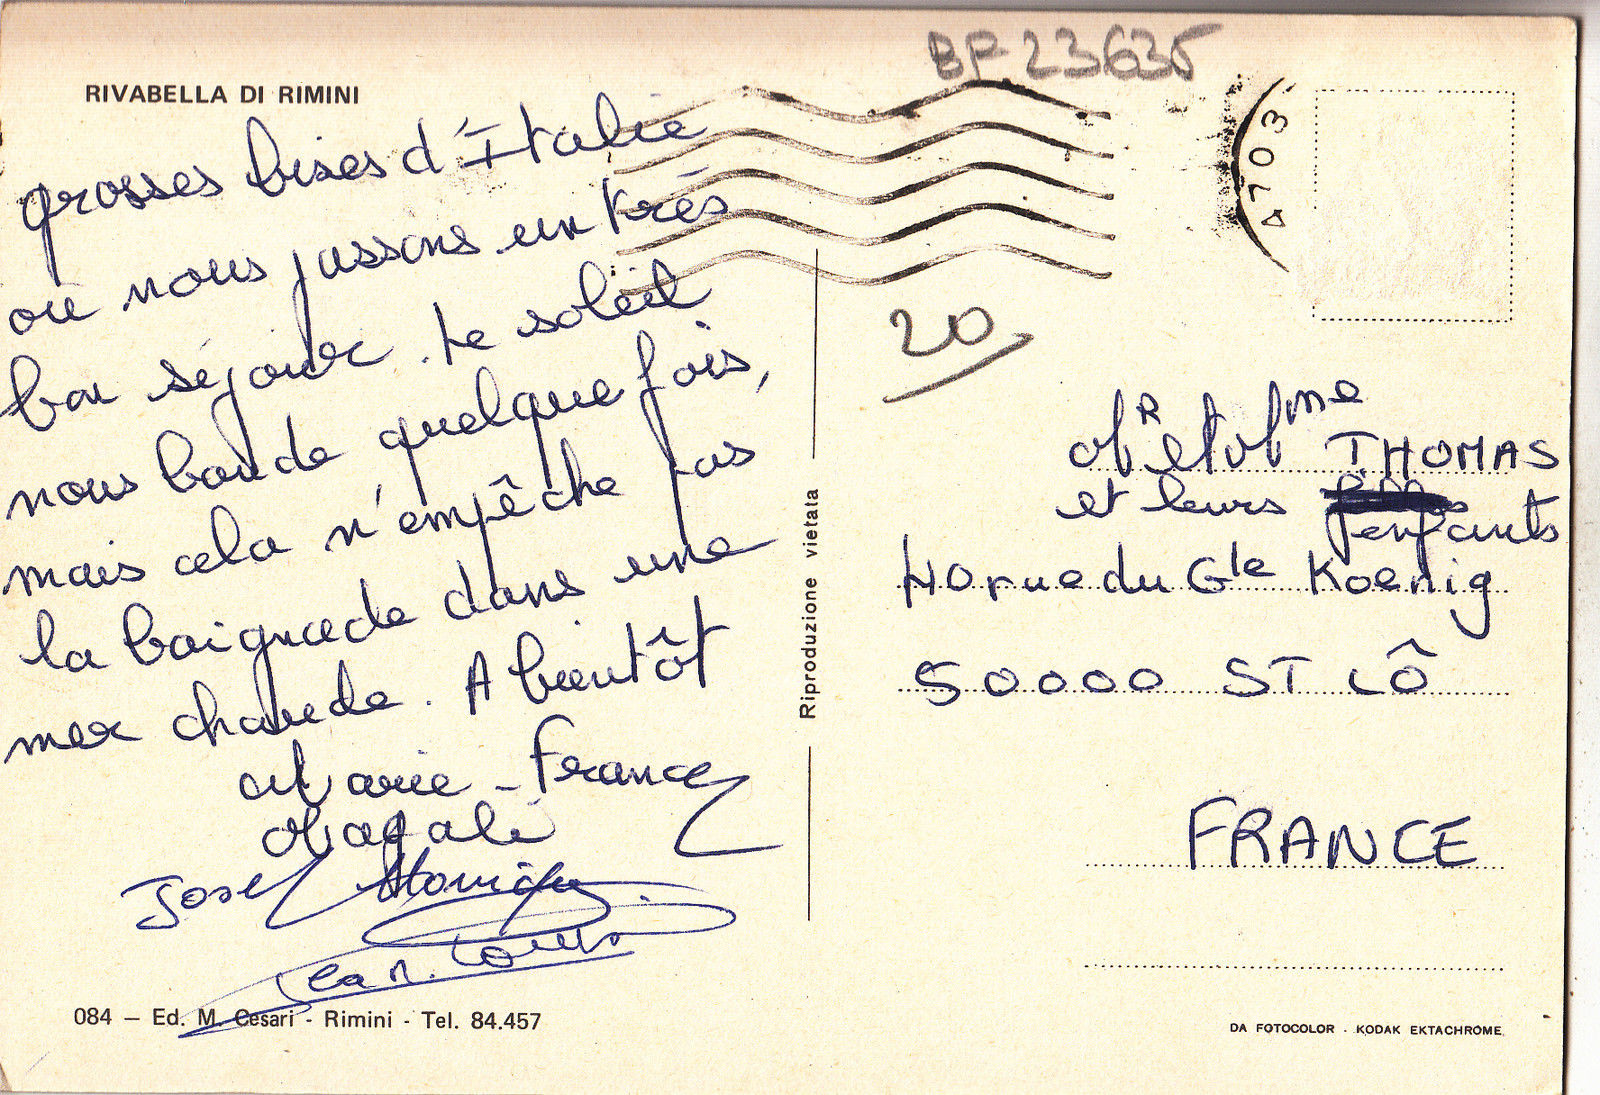 BF 23635
RIVABELLA DI RIMINI
4703
grosses bises d'Italie
où nous passons un très
bon séjour. Le soleil
nous boude quelque fois,
mais cela n'empêche pas
la baignade dans une
mer chaude. A bientôt
Marie-France
Magali
José Monique
Jean-Louis
084 — Ed. M. Cesari - Rimini - Tel. 84.457
Riproduzione vietata
20
Mr et Mme THOMAS
et leurs enfants
40 rue du Gle Koenig
50000 ST LÔ
FRANCE
DA FOTOCOLOR - KODAK EKTACHROME